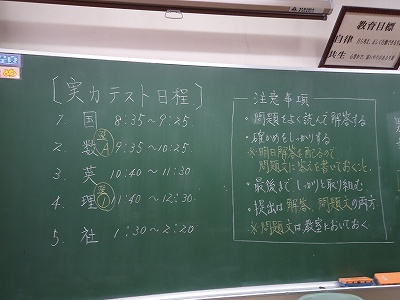 教育目標
自律
共生
［実力テスト日程］
1. 国 8:35〜9:25
2. 数 A 9:35〜10:25
3. 英 10:40〜11:30
4. 理 11:40〜12:30
5. 社 1:30〜2:20
注意事項
・問題をよく読んで解答する
・確かめをしっかりする
※明日解答を配るので
問題文に答えを書いておくこと。
・最後までしっかりと取り組む
・提出は解答、問題文の両方
※問題文は教室においておく